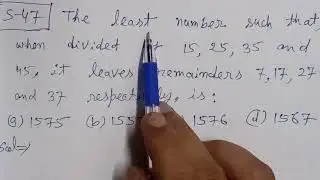 S-47 The least number such that
when divided 15, 25, 35 and
45, it leaves remainders 7, 17, 27
and 37 respectively, is:
(a) 1575 (b) 1576 (d) 1567
Sol⇒